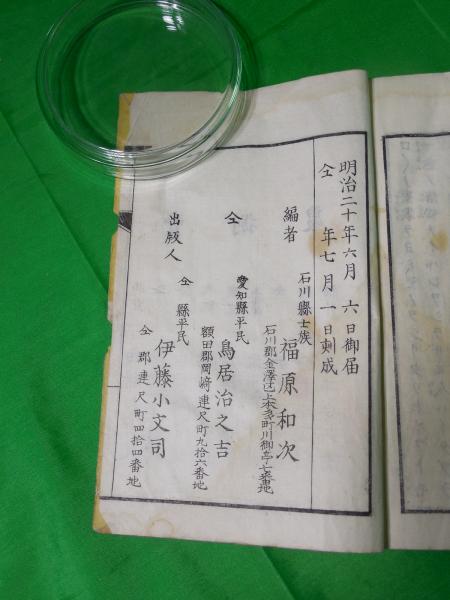 明治二十年六月六日御届
仝年七月一日刻成
編者
石川縣士族
福原和次
石川郡金澤区上本多町川御亭七番地
仝
愛知縣平民
鳥居治之吉
額田郡岡﨑連尺町九拾六番地
出版人
仝縣平民
伊藤小文司
仝郡連尺町四拾四番地